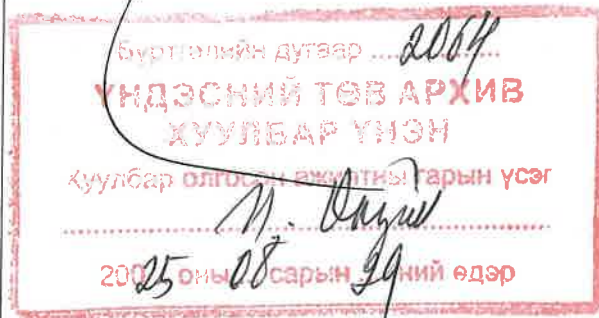 Бүртгэлийн дугаар ..... 2064
ҮНДЭСНИЙ ТӨВ АРХИВ
ХУУЛБАР ҮНЭН
Хуулбар олгосон ажилтны гарын үсэг
2025 оны 08 сарын 29 ний өдөр